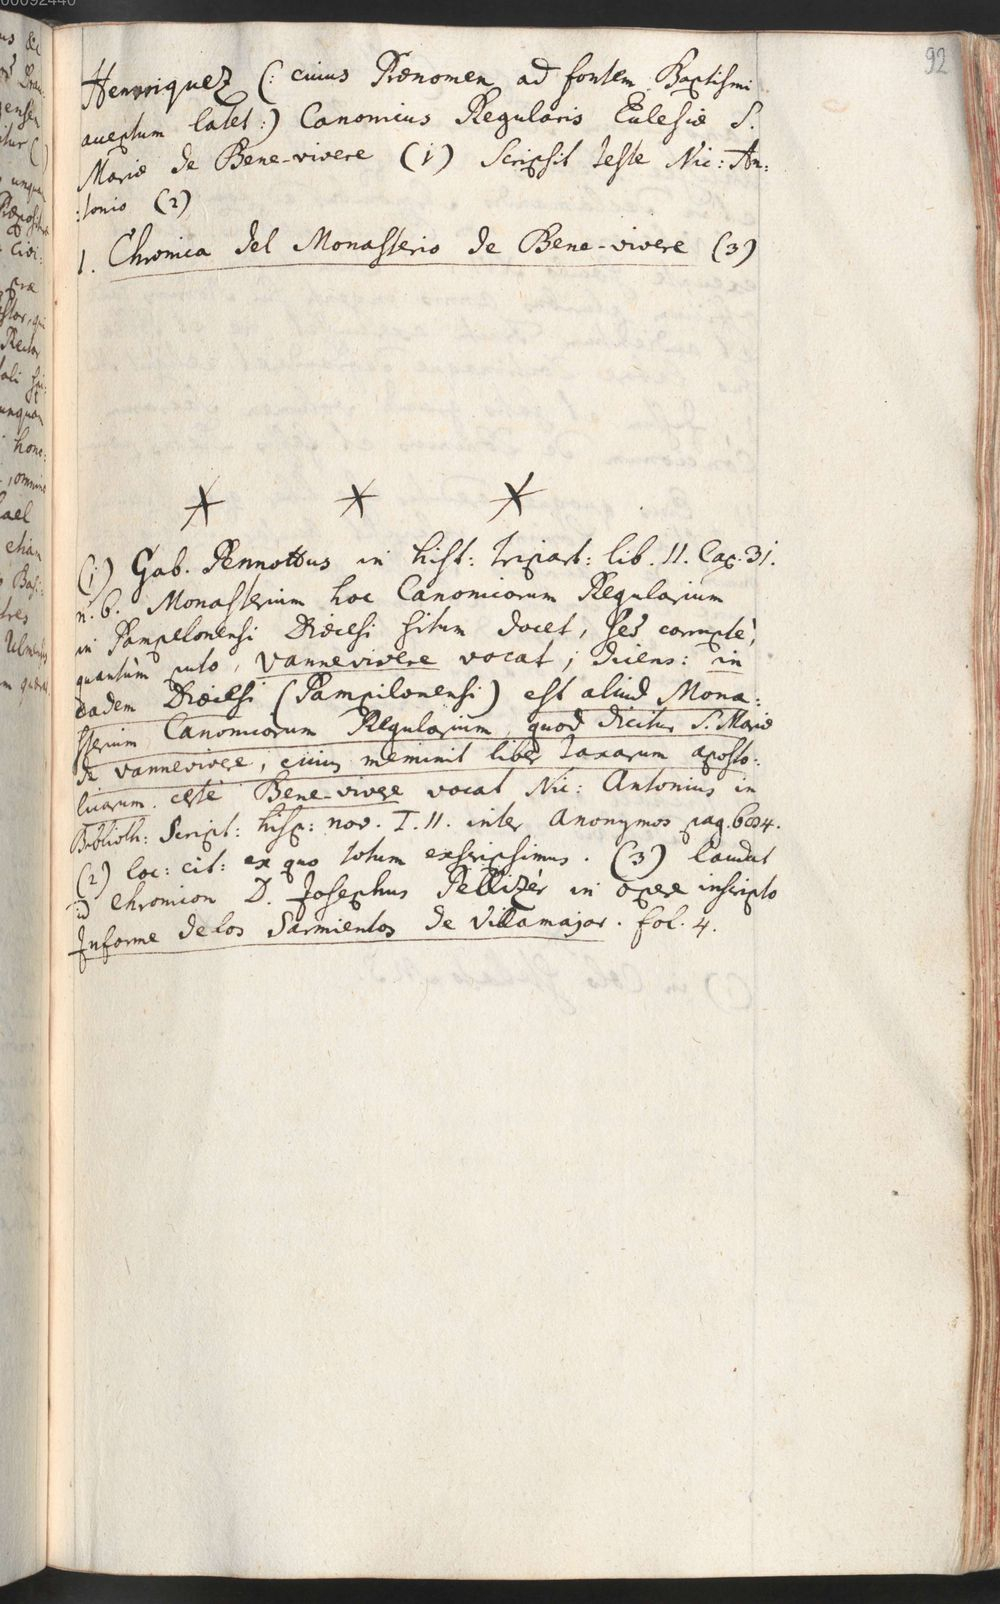 92
Henriquez (: cuius Prænomen ad fontem Baptismi
aueptum latet :) Canonicus Regularis Eulesiæ S.
Mariæ de Bene-vivere (1) Scripsit teste Nic: An:
:tonio (2)
1. Chronica del Monasterio de Bene-vivere (3)
(1) Gab. Pennottus in hist: tripart: lib. 11. Cap. 31.
n. 6. Monasterium hoc Canonicorum Regularium
in Pampelonensi Diœcesi situm docet, sed corruptè,
quantùm puto, vannevivere vocat; diciens: in
eadem Diœcesi (Pampilonensi) est aliud Mona:
sterium Canonicorum Regularium, quod dicitur S. Mariæ
de vannevivere, cuius meminit liber taxarum aposto:
licarum. certè Bene-vivere vocat Nic: Antonius in
Biblioth: Script: hisp: nov. T. II. inter Anonymos pag. 604.
(2) loc: cit: ex quo totum exscripsimus. (3) laudat
id chronicon D. Josephus Pellizér in opere inscripto
Informe de los Sarmientos de Villamajor. fol. 4.